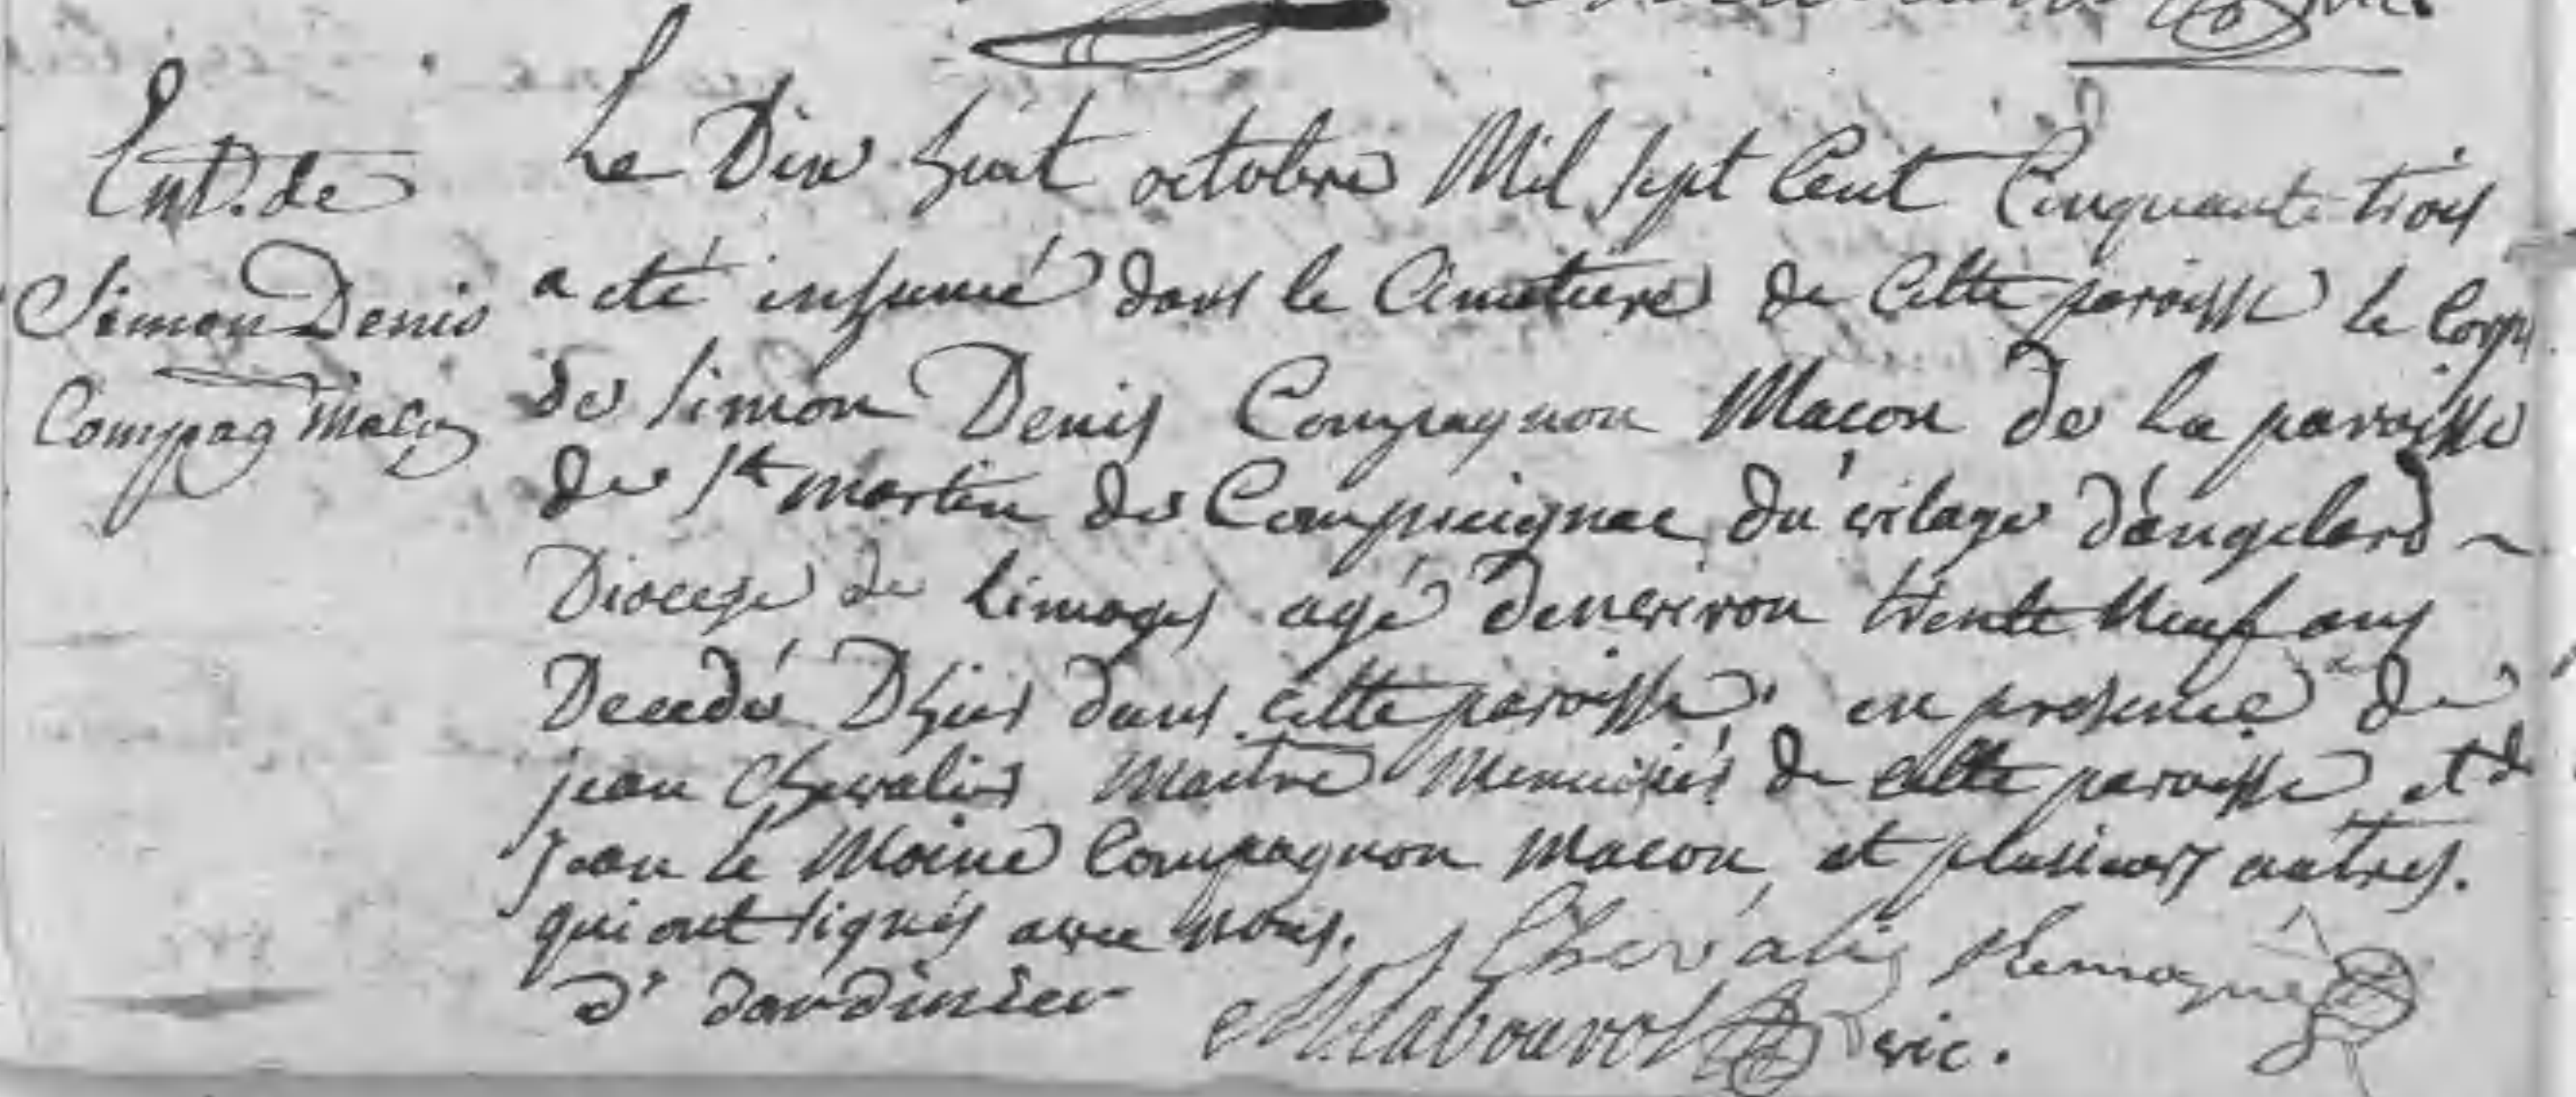 Ent. de
Simon Denis
Compag Macon
Le Dix huit octobre Mil sept Cent Cinquante trois
a eté inhumé dans le Cimetiere de Cette paroisse le Corps
de simon Denis Compagnon Macon de La paroisse
de St martin de Compreignac, du vilage d'angelard
Diocese de limoges agé denviron trente Neuf ans
Decedé Dhier dans cette paroisse, en presence de
jean Chevalier Maitre Menuisier de cette paroisse et de
Jean le Moine Compagnon Macon, et plusieurs autres.
qui ont signés avec nous.
Chevalie
d' dardinier
vic.